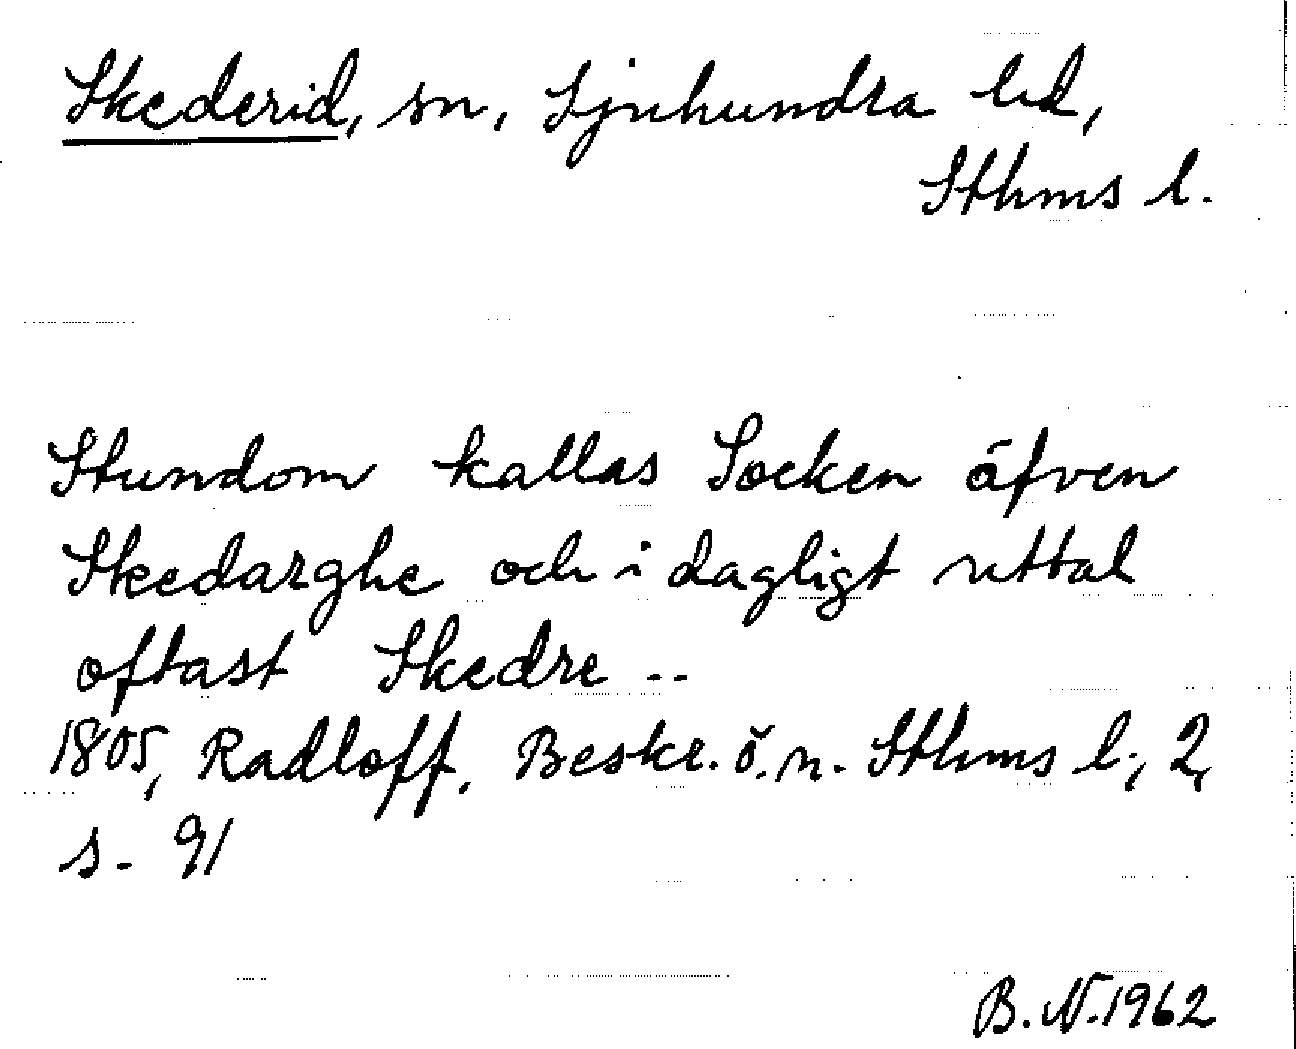 Skederid, sn, Sjuhundra hd,
Sthms l.
Stundom kallas Socken äfven
Skedarghe och i dagligt uttal
oftast Skedre --
1805, Radloff, Beskr. ö. n. Sthms l., 2,
s. 91
B. N. 1962